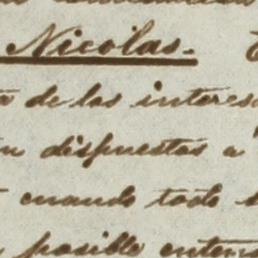 Nicolas.
de los interes
dispuestos a
cuando todo
posible enten